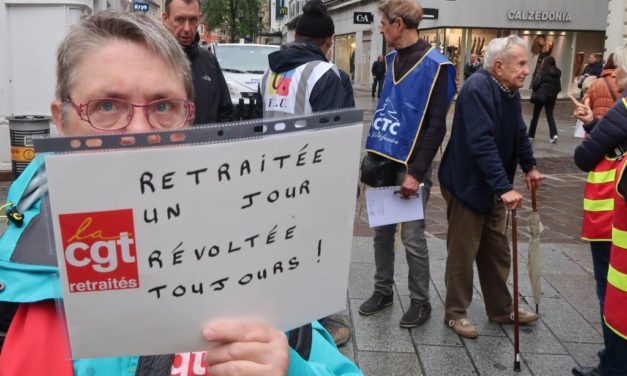 RETRAITÉE
UN JOUR
RÉVOLTÉE
TOUJOURS !
la
cgt
retraités
CALZEDONIA
Krys
cgt